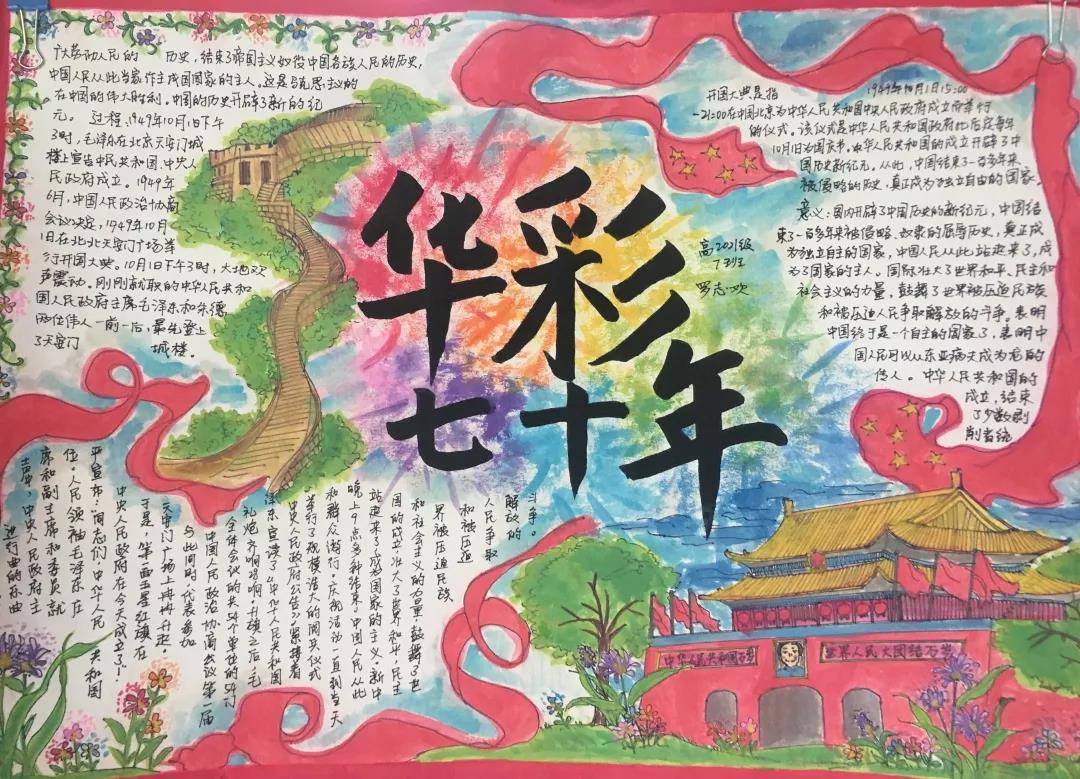 广大劳动人民的 历史,结束了帝国主义奴役中国各族人民的历史,
中国人民从此当家作主成国国家的主人。这是马克思主义的
在中国的伟大胜利。中国的历史开辟了新的纪
元。 过程:1949年10月1日下午
3时,毛泽东在北京天安门城
楼上宣告中民共和国中央人
民政府成立。1949年
6月,中国人民政治协商
会议决定,1949年10月
1日在北北天安门广场举
行开国大典。10月1日下午3时,大地欢
声震动。刚刚就职的中华人民共和
国人民政府主席毛泽东和朱德
两位伟人一前一后,最先登上
了天安门 城楼。
开国大典是指 1949年10月1日15:00
-21:00在中国北京为中华人民共和国中央人民政府成立而举行
的仪式。该仪式是中华人民共和国政府此后定每年
10月1日为国庆节。中华人民共和国的成立开辟了中
国历史新纪元。从此,中国结束了一百多年来
被侵略的历史,真正成为独立自由的国家。
意义:国内开辟了中国历史的新纪元,中国结
束了一百多年来被侵略、奴隶的屈辱历史,真正成
为独立自主的国家,中国人民从此站起来了,成
为了国家的主人。国际壮大了世界和平、民主和
社会主义的力量,鼓舞了世界被压迫民族
和被压迫人民争取解放的斗争。表明
中国终于是一个自主的国家了,表明中
国人民可以从东亚病夫成为龙的
传人。 中华人民共和国的
成立,结束
了少数剥
削者统
华彩
七十年
高2021级
7班
罗志欢
斗争。
解放的
人民争取
和被压迫
界被压迫民族
和社会主义的力量,鼓舞了世
国的成立,壮大了世界和平、民主
站起来了,成为国家的主义。新中
晚上9点多种结束。中国人民从此
和群众游行。庆祝活动一直到当天
举行了规模浩大的阅兵仪式
中央人民政府公告》。紧接着
泽东宣读了《中华人民共和国
礼炮齐鸣鸣响。升旗之后,毛
《全体会议的共54个单位的54门
中国人民政治协商会议第一届
与此同时,代表参加
天中门广场上冉冉升起。
于是,第一面五星红旗在
中央人民政府在今天成立了!
平宣布:同志们,中华人民 共和国
任。人民领袖毛泽东在
席和副主席和委员就
声中,中央人民政府主
进行曲的乐曲
中华人民共和国万岁
世界人民大团结万岁